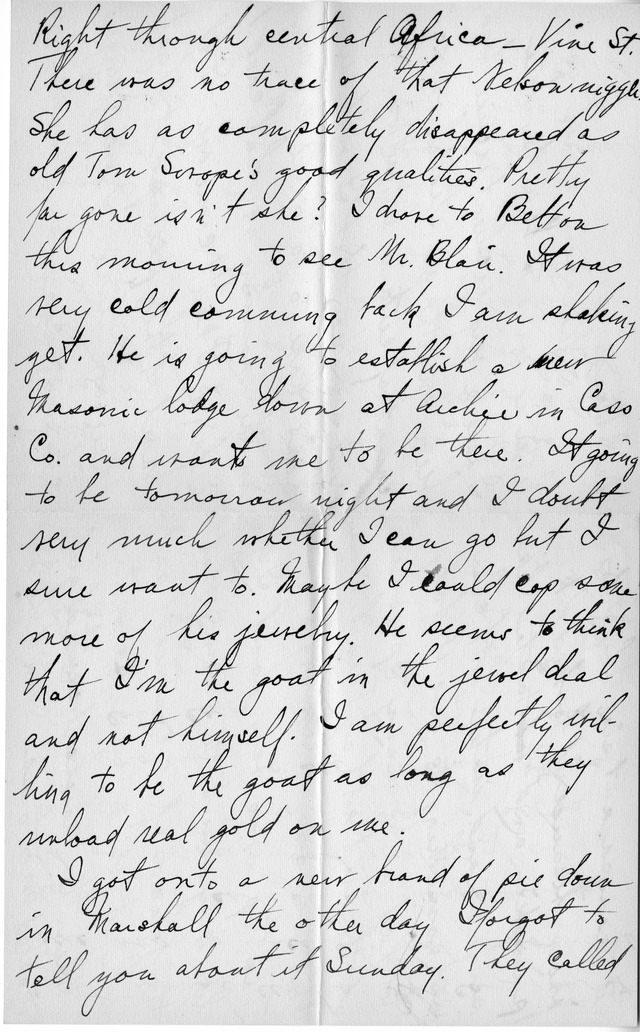 Right through central Africa - Vine St.
There was no trace of that Nelson nigger
She has as completely disappeared as
old Tom Swope's good qualities. Pretty
far gone isn't she? I drove to Belton
this morning to see Mr. Blair. It was
very cold comming back I am shaking
yet. He is going to establish a new
Masonic lodge down at Archie in Cass
Co. and wants me to be there. It going
to be tomorrow night and I doubt
very much whether I can go but I
sure want to. Maybe I could cop some
more of his jewelry. He seems to think
that I'm the goat in the jewel deal
and not himself. I am perfectly wil-
ling to be the goat as long as they
unload real gold on me.
I got onto a new brand of pie down
in Marshall the other day I forgot to
tell you about it Sunday. They called